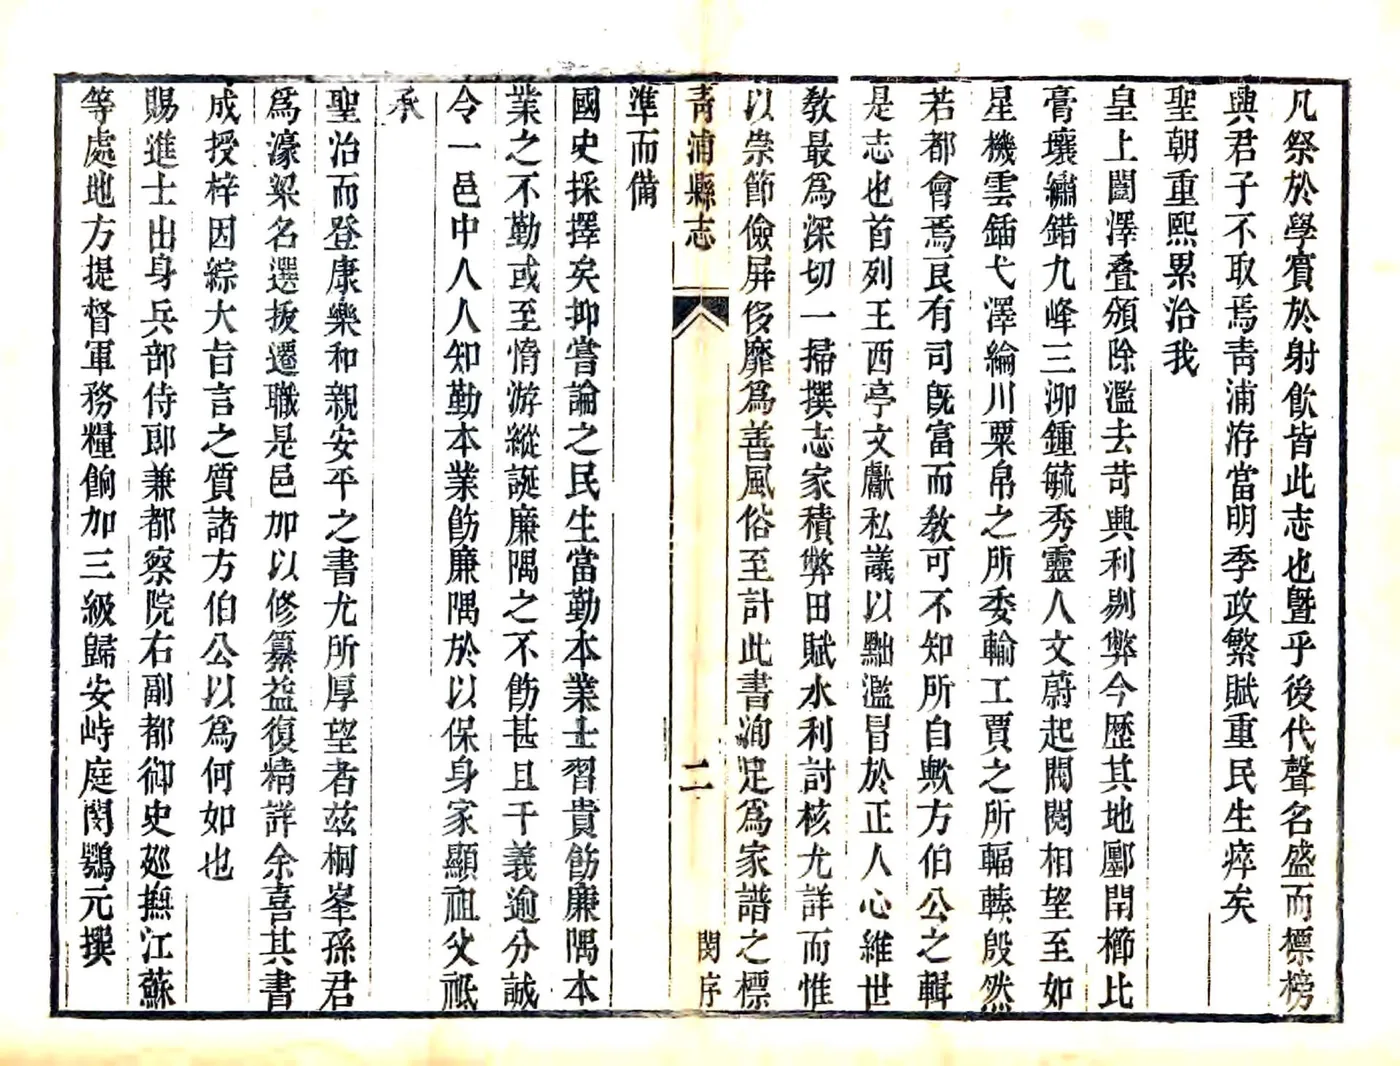 凡祭於學賓於射飲皆此志也曁乎後代聲名盛而標榜
興君子不取焉青浦洊當明季政繁賦重民生瘁矣
聖朝重熙累洽我
皇上闓澤叠頒除濫去苛興利剔弊今歷其地鄽閈櫛比
膏壤繡錯九峰三泖鍾毓秀靈人文蔚起閥閱相望至如
星機雲鍤弋澤綸川粟帛之所委輸工賈之所輻輳殷然
若都會焉良有司旣富而敎可不知所自歟方伯公之輯
是志也首列王西亭文獻私議以黜濫冒於正人心維世
敎最爲深切一掃撰志家積弊田賦水利討核尤詳而惟
以崇節儉屏侈靡爲善風俗至計此書洵足爲家譜之標
青浦縣志
二
閔序
準而備
國史採擇矣抑嘗論之民生當勤本業士習貴飭廉隅本
業之不勤或至惰游縱誕廉隅之不飭甚且干義逾分誠
令一邑中人人知勤本業飭廉隅於以保身家顯祖父祗
承
聖治而登康樂和親安平之書尤所厚望者玆桐峯孫君
爲濠梁名選拔遷職是邑加以修纂益復精詳余喜其書
成授梓因綜大旨言之質諸方伯公以爲何如也
賜進士出身兵部侍郎兼都察院右副都御史廵撫江蘇
等處地方提督軍務糧餉加三級歸安峙庭閔鶚元撰